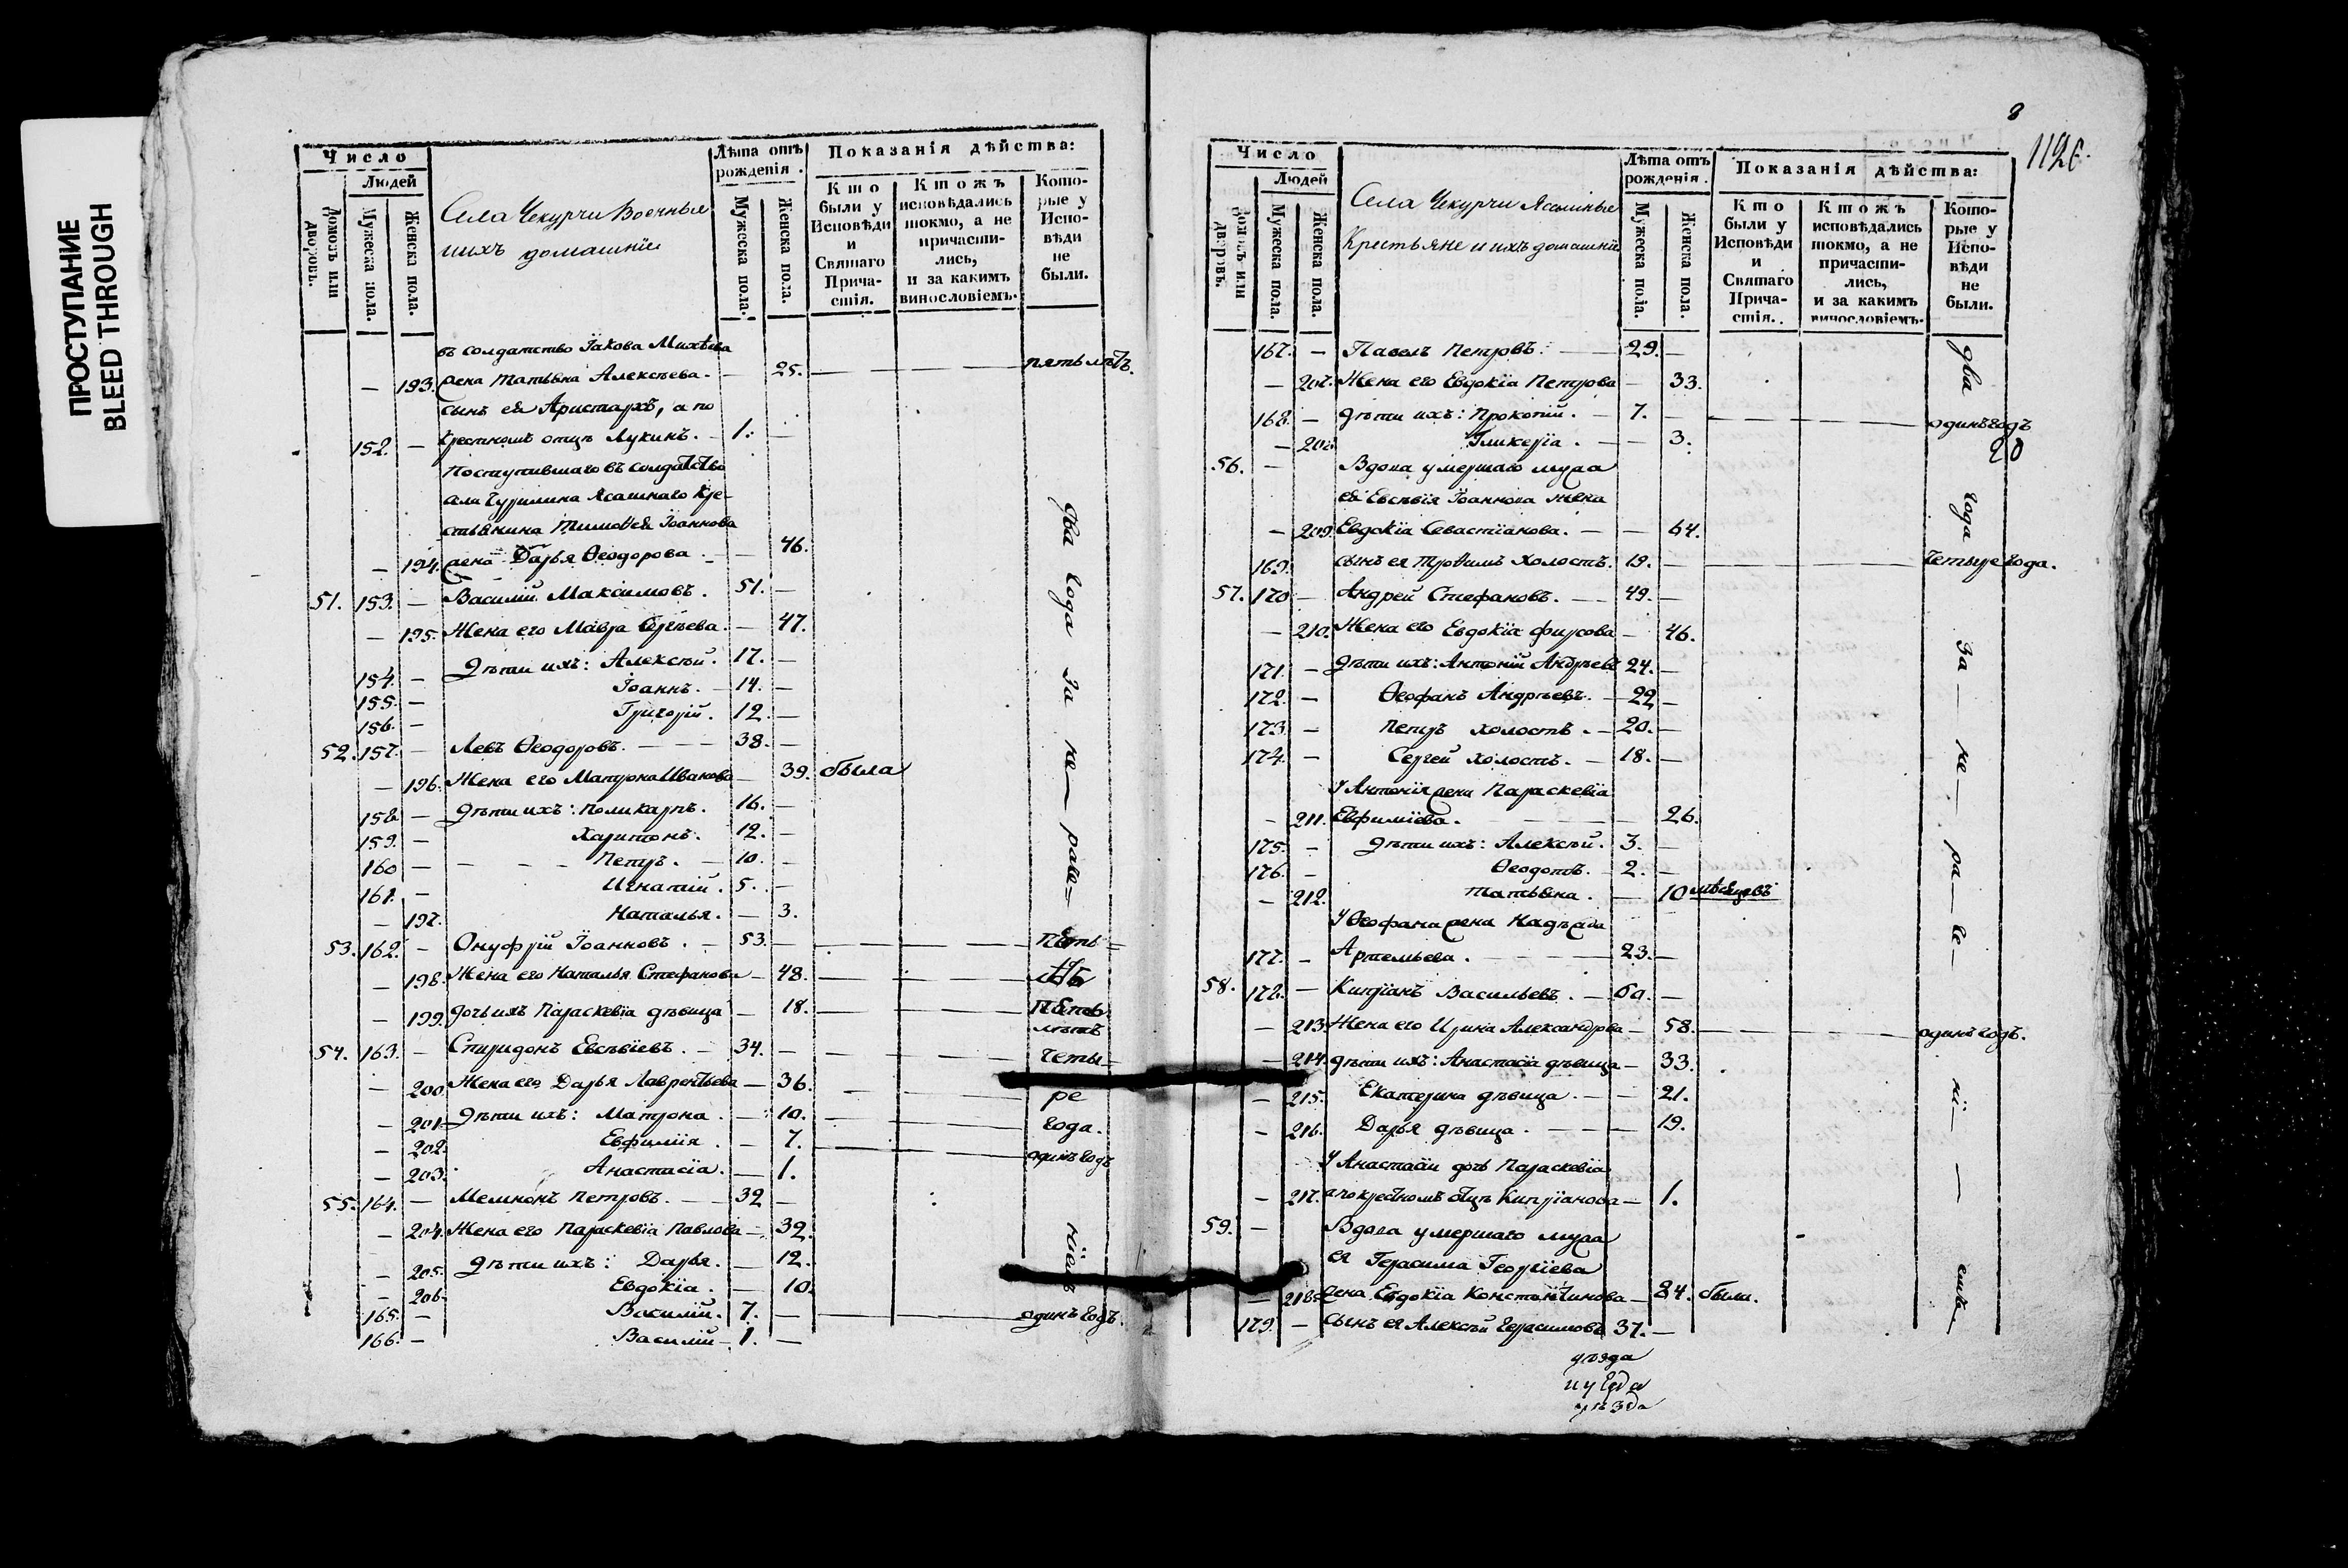 ПРОСТУПАНИЕ
BLEED THROUGH
Число
Людей
Домовъ или дворовъ.
Мужеска пола.
Женска пола.
Села Чекурчи Военные
ихъ домашніе
Лѣта отъ рожденія.
Мужеска пола.
Женска пола.
Показанія дѣйства:
Кто были у Исповѣди и Святаго Прича- стія.
Ктожъ исповѣдались токмо, а не причасти- лись, и за какимъ винословіемъ.
Кото- рые у Испо- вѣди не были.
въ солдатство Іакова Михѣева
— 193. жена Татьяна Алексѣева. — 25. — — пять лѣтъ.
сынъ ея Аристархъ, а по
152. — крестномъ отцѣ Лукинъ. — 1. —
Поступившаго въ солдатство
села Чурилина Ясашнаго кре-
стьянина Тимоѳея Іоаннова
— 194. жена Дарья Ѳеодорова. — 46.
51. 153. — Василій Максимовъ. 51. —
— 195. Жена его Мавра Сергѣева. — 47.
154. — Дѣти ихъ: Алексѣй. 17. —
155. — Іоаннъ. — 14. —
156. — Григорій. 12. —
52. 157. — Левъ Ѳеодоровъ. — — 38. —
— 196. Жена его Матрона Иванова — 39. была
158. — Дѣти ихъ: Поликарпъ. 16. —
159. — Харитонъ. 12. —
160 — — — — Петръ. — 10. —
161. — Игнатій. 5. —
— 197. Наталья. — 3.
53. 162. — Онуфрій Іоанновъ. — 53. — — — пять
— 198. Жена его Наталья Стефанова — 48. — —
— 199. Дочь ихъ Параскевія дѣвица — 18. — — пять
лѣтъ
54. 163. — Спиридонъ Евсѣвіевъ. — 34. — — — четы-
— 200 Жена его Дарья Лаврентьева — 36. — — ре
— 201. Дѣти ихъ: Матрона. — 10. — — года.
— 202. Евфимія. — 7. — — одинъ годъ
— 203. Анастасіа. — 1.
55. 164. — Мемнонъ Петровъ. — — 32 —
— 204. Жена его Параскевіа Павлова — 32.
— 205. Дѣти ихъ: Дарья. — 12.
— 206. Евдокіа. — 10.
165. — Василій. 7. — — — одинъ годъ.
166. — Василій — 1. —
два года за не— раче= ніемъ
8
112
Число
Людей
Домовъ или дворовъ.
Мужеска пола.
Женска пола.
Села Чекурчи Ясашные
Крестьяне и ихъ домашніе
Лѣта отъ рожденія.
Мужеска пола.
Женска пола.
Показанія дѣйства:
Кто были у Исповѣди и Святаго Прича- стія.
Ктожъ исповѣдались токмо, а не причасти- лись, и за какимъ винословіемъ.
Кото- рые у Испо- вѣди не были.
167. — Павелъ Петровъ. — 29. —
— 207. Жена его Евдокіа Петрова — 33.
168. — Дѣти ихъ: Прокопій. — 7. — — — одинъ годъ
— 208. Гликеріа. — — 3.
20
56. — Вдова умершаго мужа
ея Евсѣвія Іоаннова жена
— 209. Евдокіа Севастіанова. — — 64.
169. сынъ ея Трофимъ холостъ. 19. — — — четыре года.
57. 170 — Андрей Стефановъ. — 49. —
— 210. Жена его Евдокіа Фирсова — 46.
171. — Дѣти ихъ: Антоній Андреевъ 24. —
172. — Ѳеофанъ Андрѣевъ. — 22 —
173. — Петръ холостъ. — 20. —
174. — Сергей холостъ. — 18. —
У Антонія жена Параскевіа
— 211. Евфиміева. — — — 26.
175. — Дѣти ихъ: Алексѣй. 3. —
176. — Ѳеодотъ. — 2. —
— 212. Татьяна. — 10 мѣсяцевъ
У Ѳеофана жена Надѣжда
177. — Артемьева. — — 23. —
58. 178. — Кипріанъ Васильевъ. — 60. —
— 213. Жена его Ирина Александрова — 58. — — одинъ годъ.
— 214. Дѣти ихъ: Анастасіа дѣвица — 33.
— 215. Екатерина дѣвица. — — 21.
— 216. Дарья дѣвица. — — — 19.
У Анастасіи дочь Параскевіа
— 217. а по крестномъ отцѣ Кипріанова — 1.
59. — Вдова умершаго мужа
ея Герасима Георгіева
— 218. жена Евдокіа Константинова — 84. были.
179. — Сынъ ея Алексѣй Герасимовъ 37. —
два года за — не— ра— че— ні— — емъ
уѣзда
уѣзда